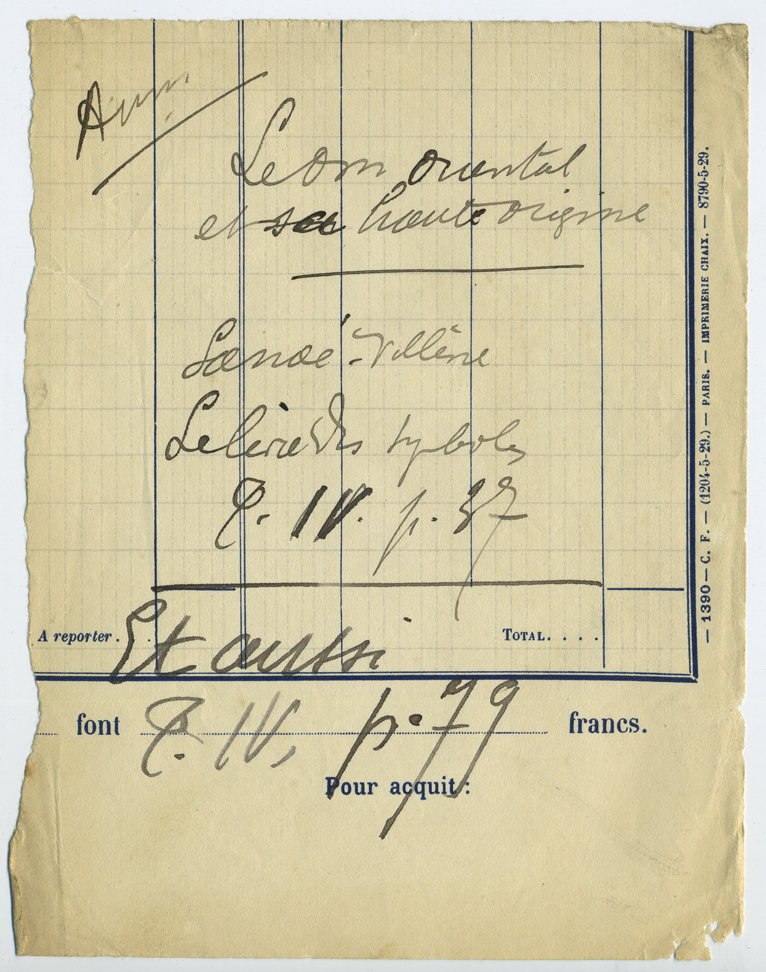 Le om oriental
et sa haute origine
Lanoé-Villène
Le livre des symboles
T. IV. p. 37
A reporter . .
TOTAL. . . .
Et aussi
T. IV, p. 79
font
francs.
Pour acquit :
— 1390 — C. F. — (1204-5-29.) — PARIS. — IMPRIMERIE CHAIX. — 8790-5-29.